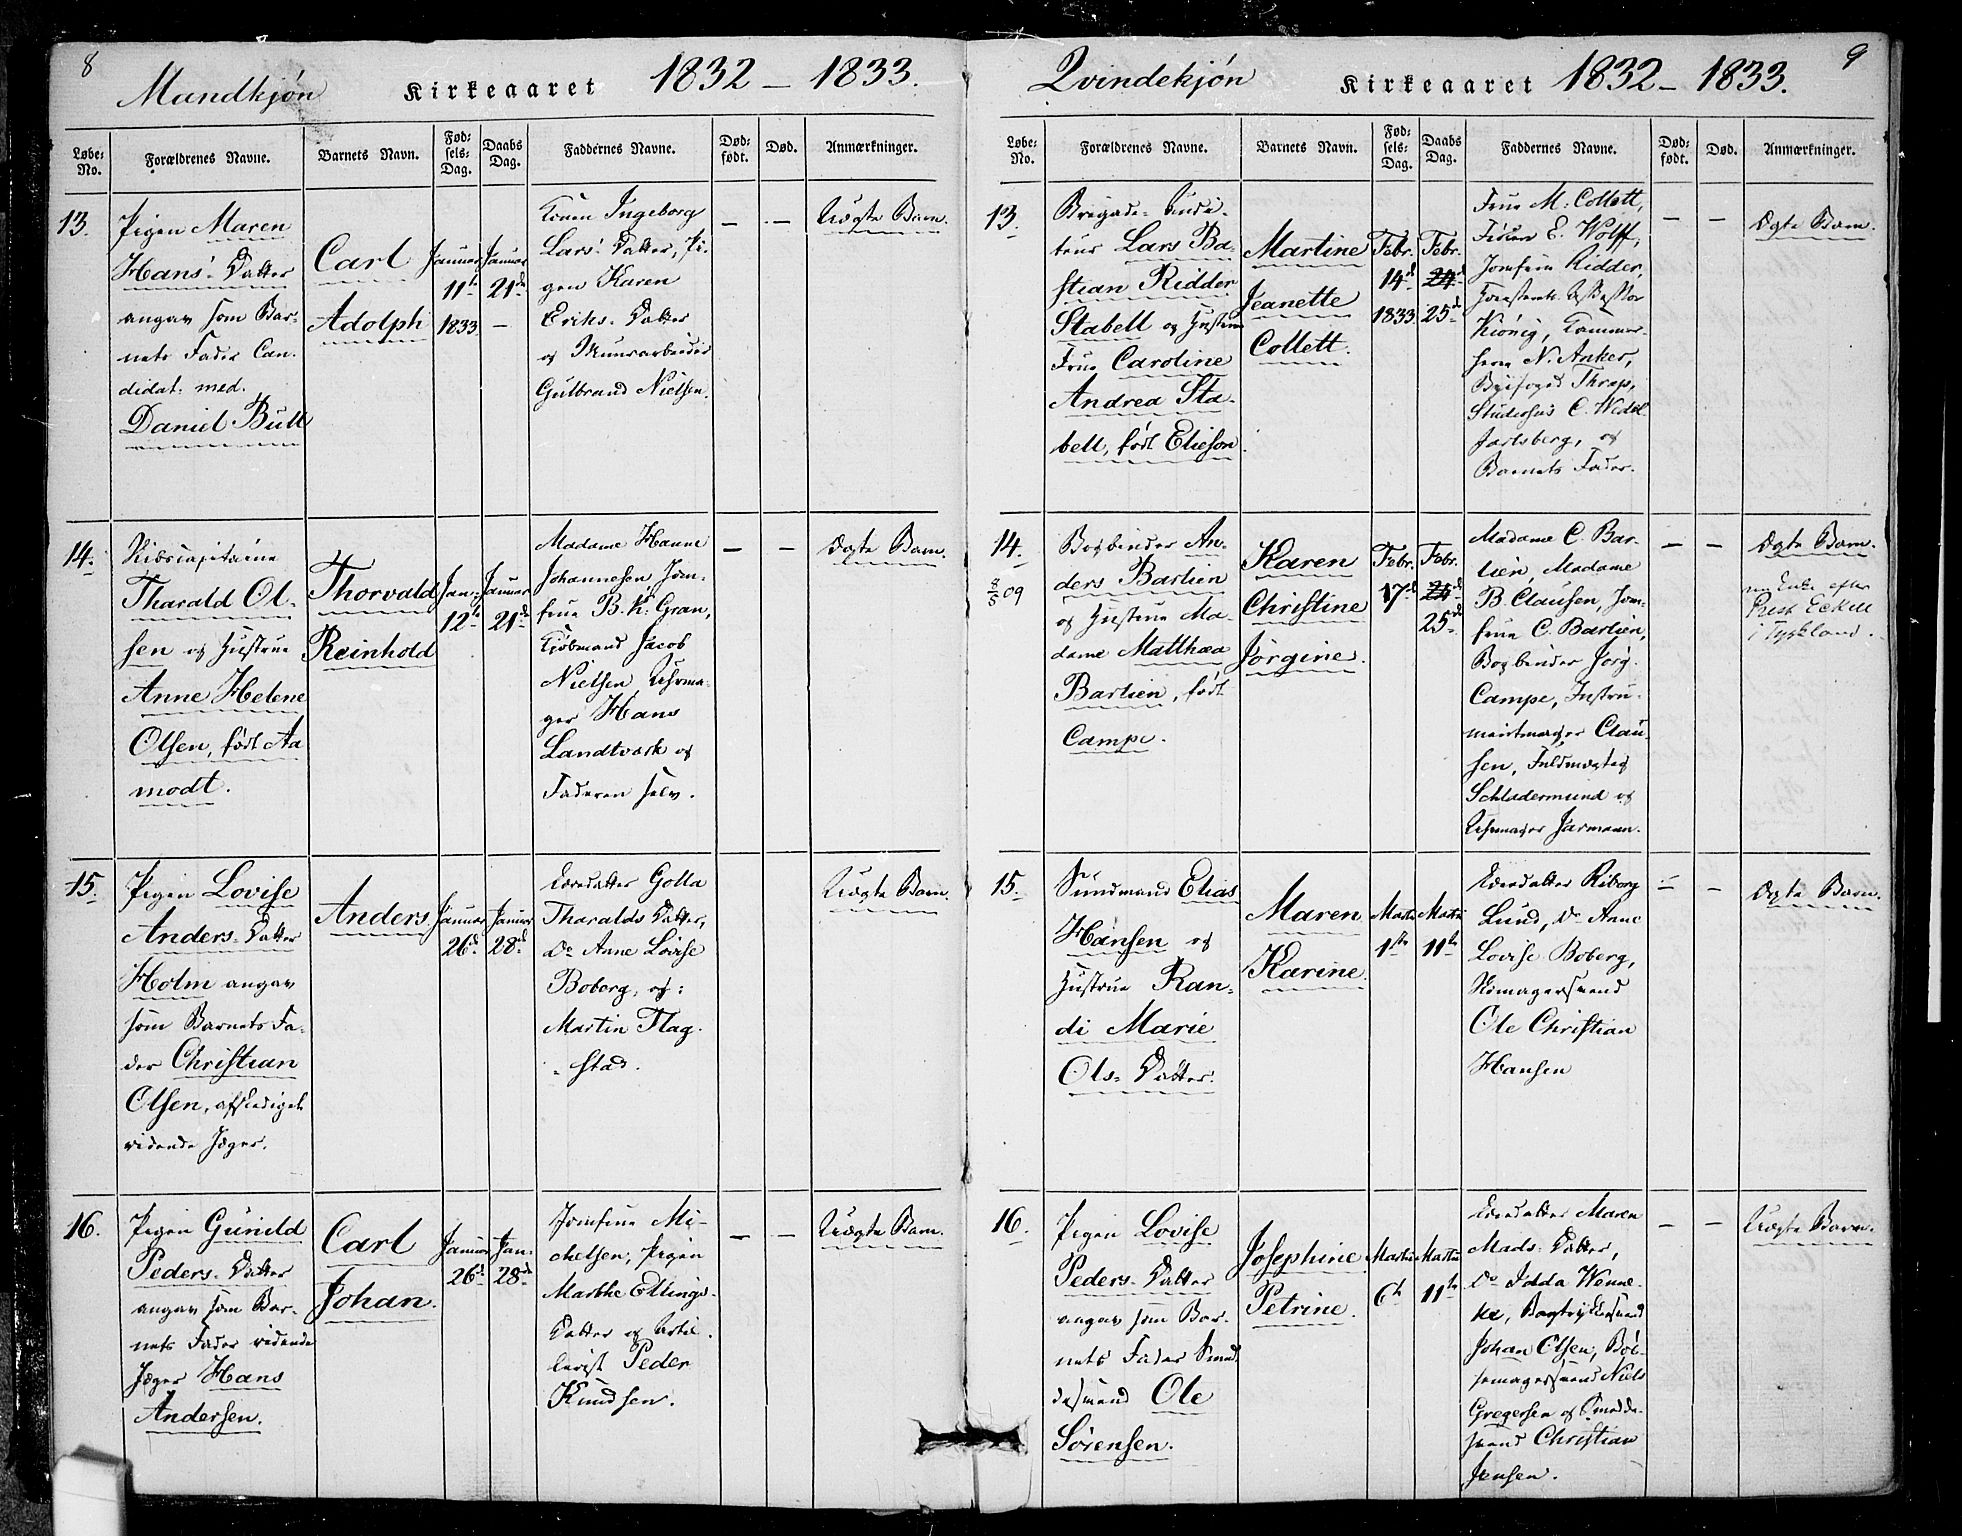 8
Mandkjøn Kirkeaaret 1832 – 1833.
Løbe-No.
Forældrenes Navne.
Barnets Navn.
Fødsels-Dag.
Daabs Dag.
Faddernes Navne.
Dødfødt.
Død.
Anmærkninger.
13.
Pigen Maren
Hans' Datter
angav som Bar-
nets Fader Can-
didat. med.
Daniel Bull
Carl
Adolph
Januar
11te
1833
Januar
21de
–
Konen Ingeborg
Lars' Datter, Pi-
gen Karen
Eriks-Datter
og Muurarbeider
Gulbrand Nielsen.
– –
Uægte Barn.
14.
Skibscapitaine
Tharald Ol-
sen og Hustrue
Anne Helene
Olsen, født Aa
modt.
Thorvald
Reinhold
Jan.
12te
Januar
21de
Madame Hanne
Johannesen, Jom-
frue B. K. Gran,
Kjøbmand Jacob
Nielsen, Uhrma-
ger Hans
Landtvark og
Faderen selv.
– –
Ægte Barn.
15.
Pigen Lovise
Anders-Datter
Holm angav
som Barnets Fa-
der Christian
Olsen, afskediget
ridende Jæger.
Anders
Januar
26de
Januar
28de
Eeredatter Golla
Tharalds Datter,
Do Anne Lovise
Boberg, og
Martin Flag-
stad.
Uægte Barn.
16.
Pigen Gunild
Peders-Datter
angav som Bar-
nets Fader ridende
Jæger Hans
Andersen.
Carl
Johan.
Januar
26de
Jan.
28de
Jomfrue Mi-
chelsen, Pigen
Marthe Ellings-
Datter og Artil-
lerist Peder
Knudsen.
– –
Uægte Barn.
9
Qvindekjøn Kirkeaaret 1832 – 1833.
Løbe-No.
Forældrenes Navne.
Barnets Navn.
Fødsels-Dag.
Daabs Dag.
Faddernes Navne.
Dødfødt.
Død.
Anmærkninger.
13.
Brigade-Audi-
teur Lars Ba-
stian Ridder
Stabell og Hustrue
Frue Caroline
Andrea Sta-
bell, født Elieson
Martine
Jeanette
Collett.
Febr.
14de
1833
Febr.
24de
25de
Frue M. Collett,
Frøken E. Wolff,
Jomfrue Ridder,
Kiønig, Kammer-
herre N. Anker,
Byefoged Thrap,
Studiosus C. Wedel
Jarlsberg, og
Barnets Fader.
– –
Ægte Barn.
14.
8/5 09
Bogbinder An-
ders Bartien
og Hustrue Ma-
dame Matthæa
Bartien, født
Campe.
Karen
Christine
Jørgine.
Febr.
17de
Febr.
24de
25de
Madame C. Bar-
tien, Madame
B. Clausen, Jom-
frue C. Bartien,
Bogbinder Jørg.
Campe, Instru-
mentmager Clau-
sen, Fuldmægtig
Schladermund og
Uhrmager Jarmann.
– –
Ægte Barn.
Enke efter
Prest Eckell
i Tyskland.
15.
Sundmand Elias
Hansen og
Hustrue Ran-
di Marie
Ols-Datter.
Maren
Karine
Martii
1ste
Martii
11te
Eeredatter Riborg
Lund, Do Anne
Lovise Boberg,
Skomagersvend
Ole Christian
Hansen
– –
Ægte Barn.
16.
Pigen Lovise
Peders-Datter
angav som Bar-
nets Fader Smed-
desvend Ole
Sörensen.
Josephine
Petrine.
Martii
6te
Martii
11te
Eeredatter Maren
Mads-Datter,
Do Idda Wenne-
ke, Bogtrykkersvend
Johan Olsen, Bøs-
semagersvend Niels
Gregersen og Smedde-
svend Christian
Jensen.
– –
Uægte Barn.